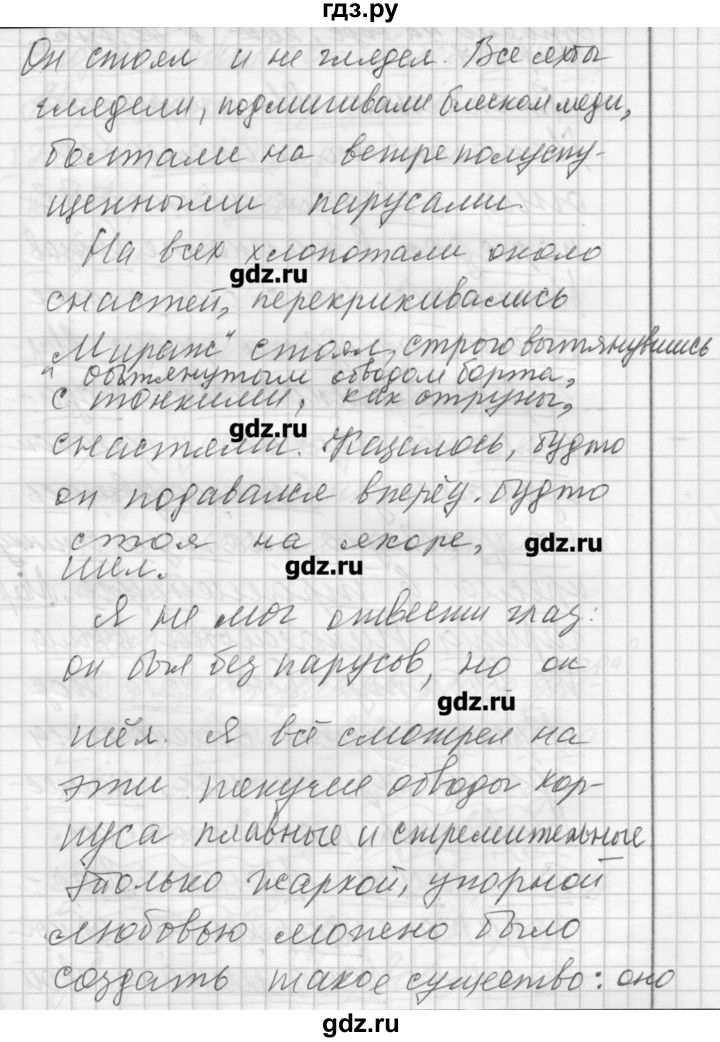 гдз.ру
Он стоял и не глядел. Все яхты
глядели, подмигивали блеском меди,
болтали на ветре полуспу-
щенными парусами.
На всех хлопотали около
gdz.ru
снастей, перекрикивались
„Мираж" стоял, строго вытянувшись
с вытянутым обводом борта,
с тонкими, как струны,
gdz.ru
снастями. Казалось, будто
он подавался вперёд. Будто
стоя на якоре,
gdz.ru
шёл.
gdz.ru
Я не мог отвести глаз:
он был без парусов, но он
gdz.ru
шёл. Я всё смотрел на
эти текучие обводы кор-
пуса плавные и стремительные
только жаркой, упорной
любовью можно было
создать такое существо: оно
gdz.ru